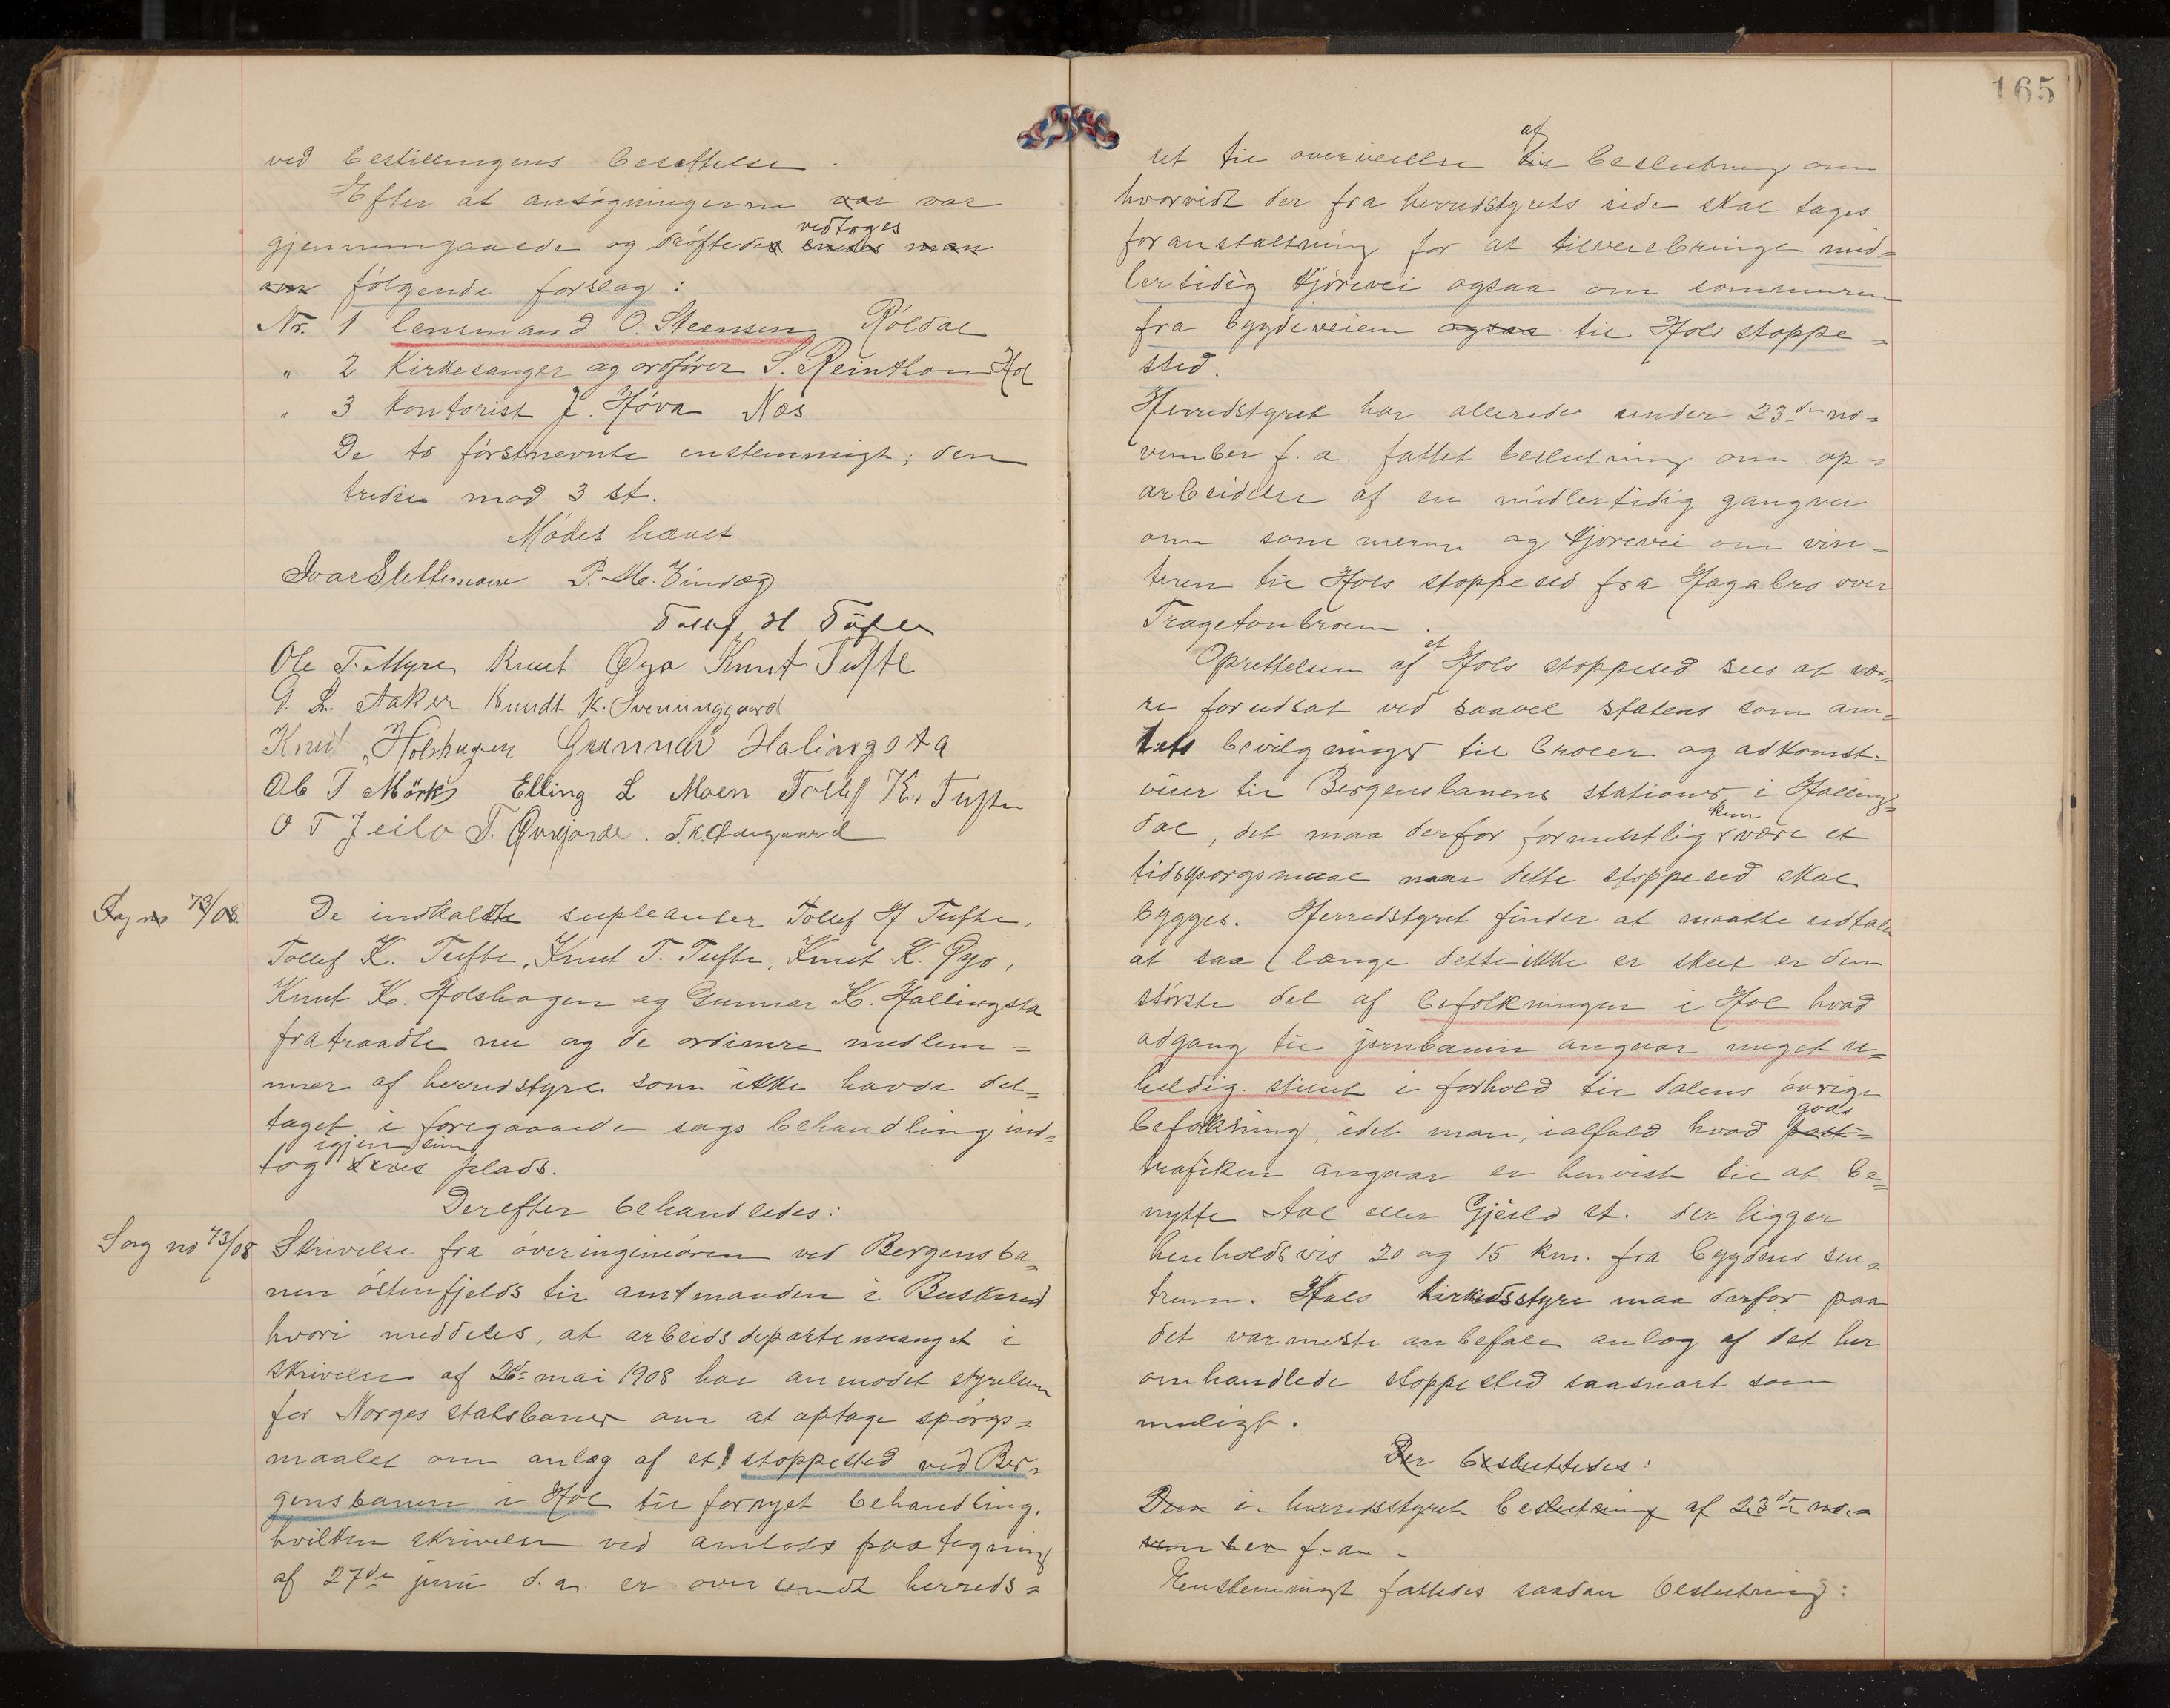 ved bestillingens besættelse.
Efter at ansøgningerne var var
gjennemgaaede og drøftedes enedes man vedtoges
om følgende forslag:
Nr. 1 lensmand O. Steensen, Røldal
" 2 Kirkesanger og ordfører S. Reinton Hol
" 3 Kontorist J. Hóva Næs
De to førstnevnte enstemmigt; den
tredie mod 3 st.
Mødet hævet
Ivar Slettemoen P. M.
Tollef H Tufte
Ole T. Myre Knut Øyo Knut Tufte
G. L. Aaker Knudt K. Sveningsgaard
Knud Holshagen Gunnar Halingsta
Ole T Mørk Elling L Moen Tollef K. Tufte
O T Jeilo T. Øvrgarde. T. K. Øvregaard
Sag no 73/08
De indkaldte supleanter Tollef H Tufte,
Tollef K. Tufte, Knut T. Tufte, Knut K. Øyo,
Knut K. Holshagen og Gunnar K. Hallingsta
fratraadte nu og de ordinære medlem=
mer af herredstyre som ikke havde del=
taget i foregaaende sags behandling ind=
tog igjen sin plads.
Derefter behandledes:
Sag no 73/08 Skrivelse fra overingeniøren ved Bergensba=
nen østenfjelds til amtmanden i Buskerud
hvori meddeles, at arbeidsdepartemanget i
skrivelse af 26de mai 1908 har anmodet styrelsen
for Norges statsbaner om at optage spørgs=
maalet om anlæg af et stoppested ved Ber=
gensbanen i Hol til fornyet behandling,
hvilken skrivelse ved amtets paategning
af 27de juni d.a. er oversendt herreds=
165
ret til overveielse til af beslutning om
hvorvidt der fra herredstyrets side skal tages
foranstaltning for at tilveiebringe mid=
lertidig kjørevei ogsaa om sommeren
fra bygdeveien ogsaa til Hols stoppe=
sted.
Herredstyret har allerede under 23de no=
vember f.a. fattet beslutning om op=
arbeidelse af en midlertidig gangvei
om sommeren og kjørevei om vin=
teren til Hols stoppesed fra Hagabro over
Tragetonbroen.
Oprettelsen af et Hols stoppesed sees at væ=
re forudsat ved saavel statens som am=
tets bevilgninger til broer og adkomst=
veier til Bergensbanens stationer i Halling=
dal, det maa derfor formentlig kun være et
tidsspørgsmaal naar dette stoppesed skal
bygges. Herredstyret finder at maatte udtale
at saa længe dette ikke er skeet er den
største del af befolkningen i Hol hvad
adgang til jernbanen angaar meget u=
heldig stillet i forhold til dalens øvrige
befolkning, idet man, ialfald hvad post= gods
trafiken angaar er henvist til at be=
nytte Aal eller Gjeilo st. der ligger
henholdsvis 20 og 15 km. fra bygdens sen=
trum. Hols herredsstyre maa derfor paa
det varmeste anbefale anlæg af det her
omhandlede stoppested saasnart som
muligt.
Der besluttedes:
Den i herredsstyret beslutning af 23de no=
vember f. aa.
Enstemmigt fattedes saadan beslutning: